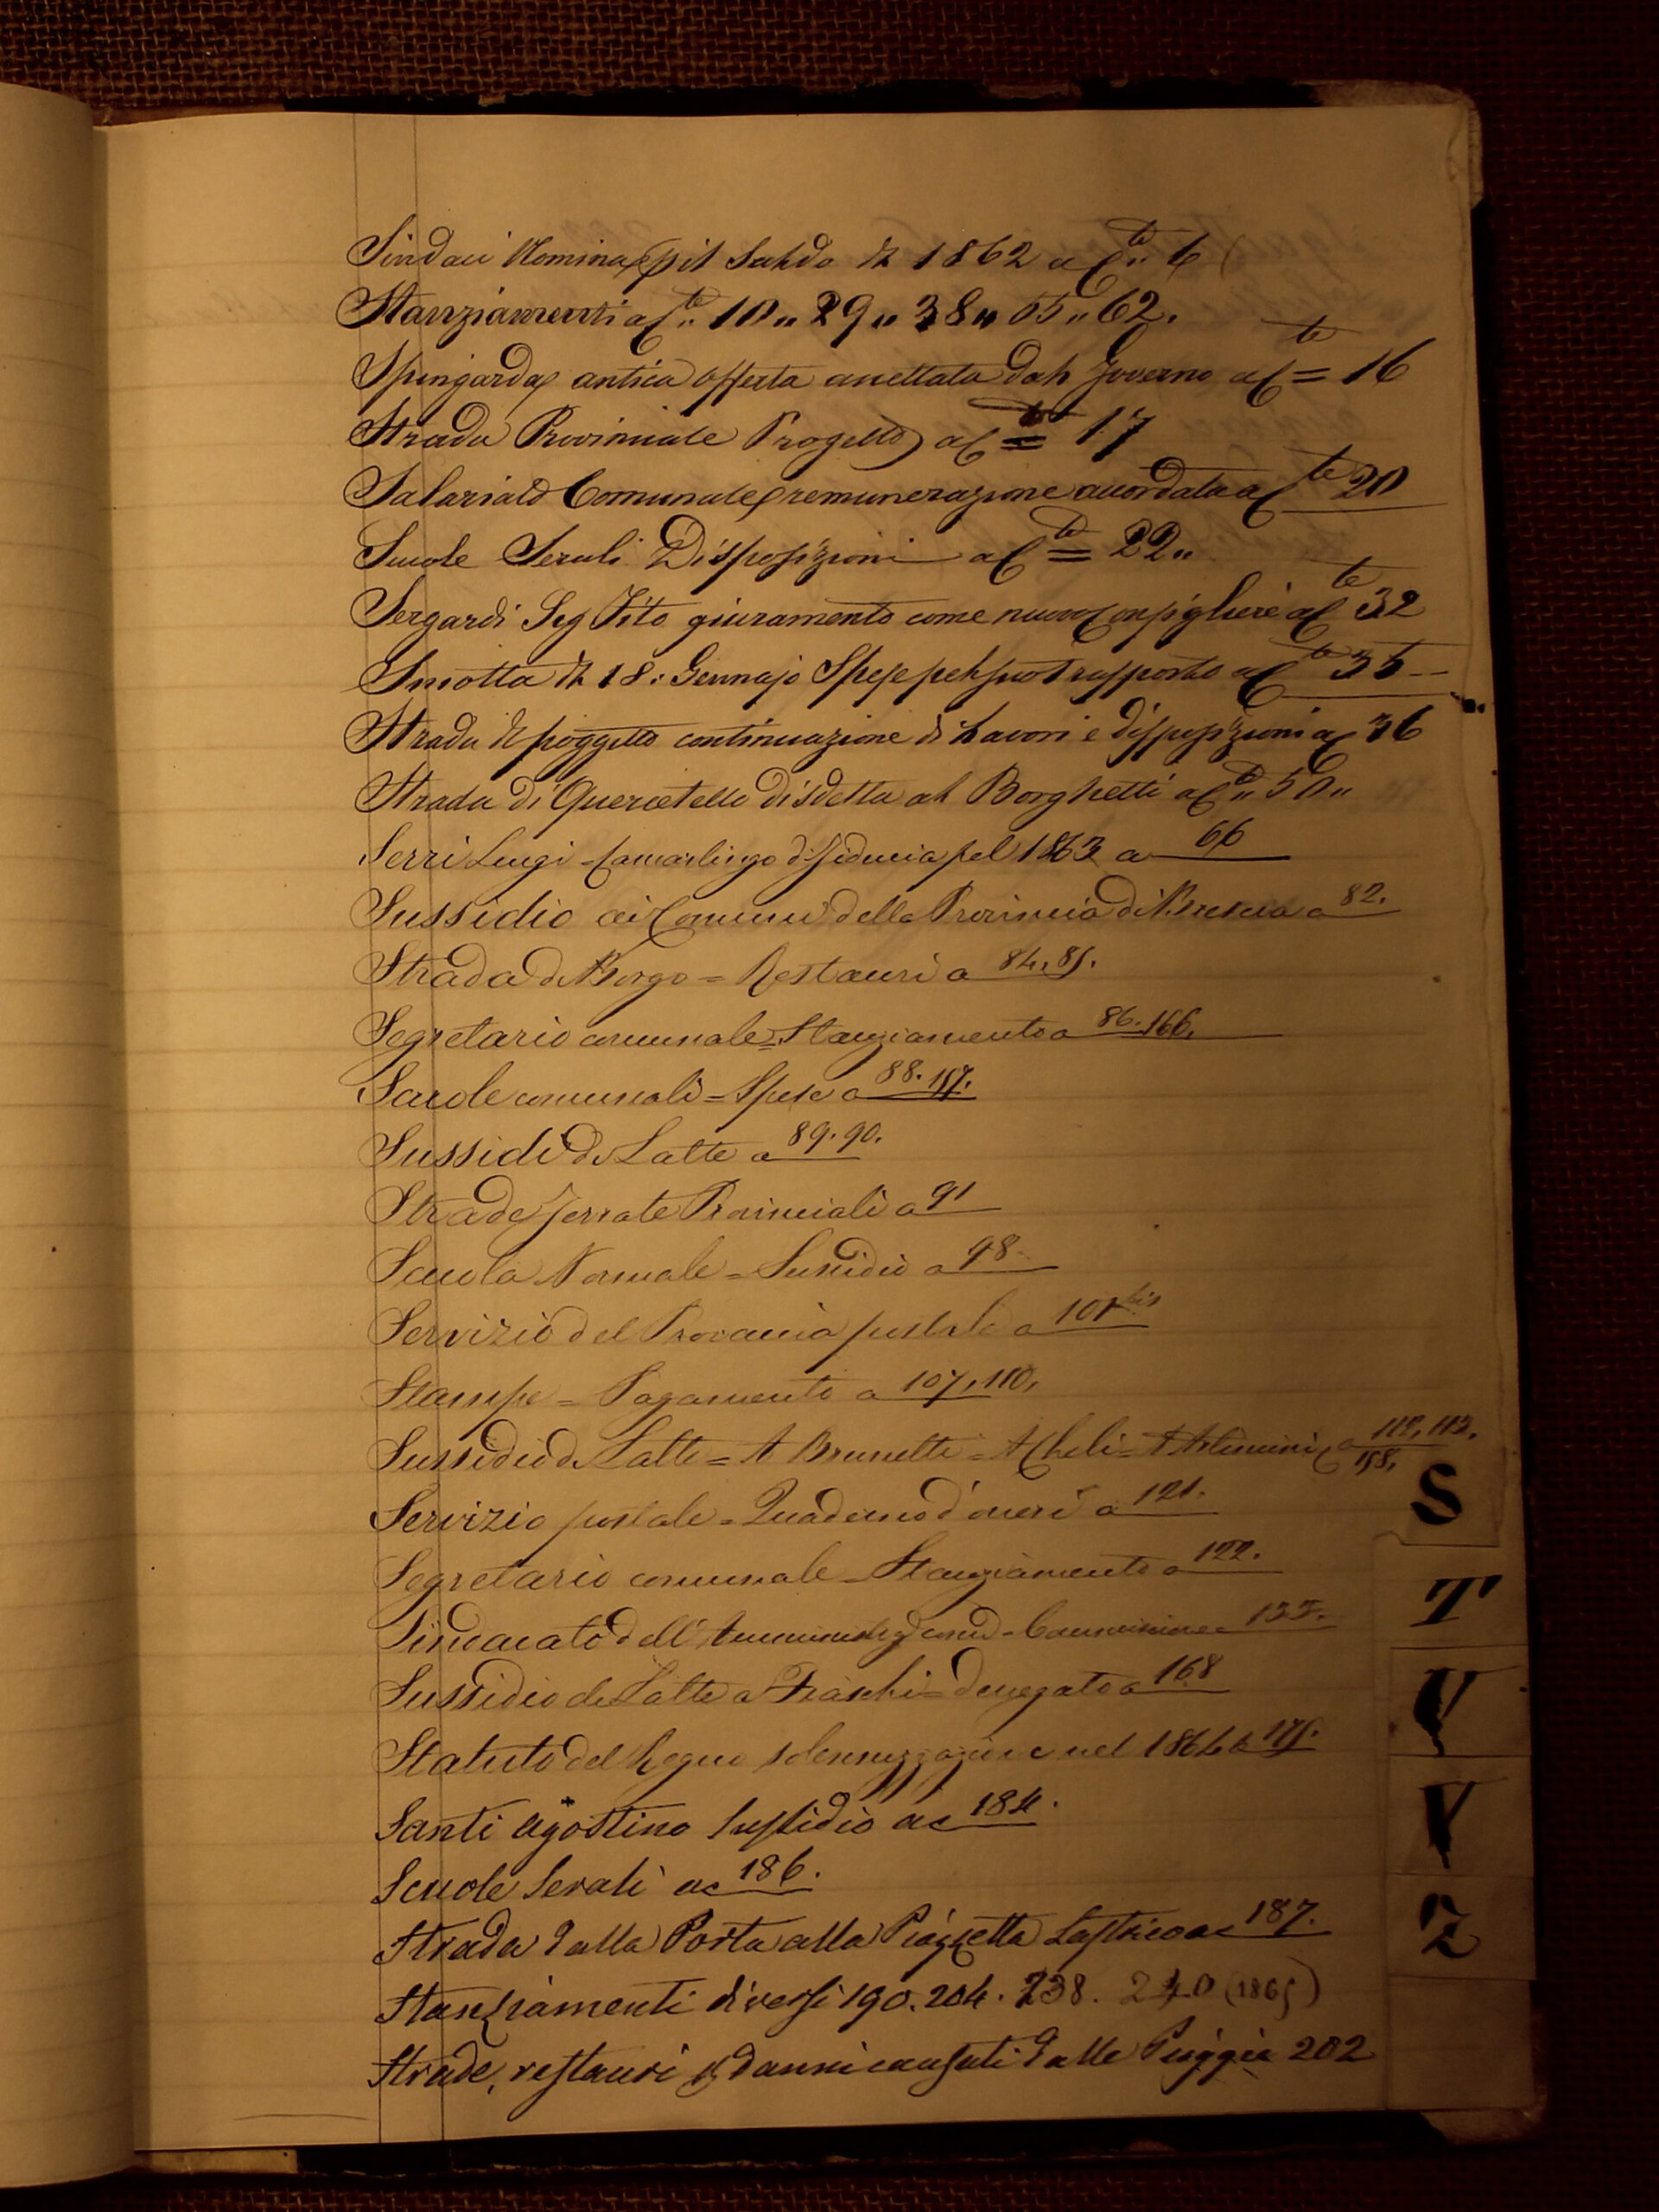 Sindaci Nomina pil Saldo del 1862 a C.te 6
Stanziamenti a C.te 10 „ 29 „ 38 „ 55 „ 62.
Spingarda antica offerta accettata dal Governo a C.te = 16
Strada Provinciale Progetto a C.te = 17
Salariato Comunale remunerazione accordata a C.te 20
Scuole Serali Disposizioni a C.te = 22 „
Sergardi Sig Tito giuramento come nuovo Consigliere a C.te 32
Smotta del 18: Gennajo Spese pel suo trasporto a C.te 35
Strada del poggetto continuazione di Lavori e disposizioni a C 36
Strada di Quercetello disdetta al Borghetti a C.te „ 50 „
Serri Luigi = Camarlingo di fiducia pel 1863 a 66
Sussidio ai Comuni della Provincia di Brescia a 82.
Strada di Borgo = Restauri a 84, 85.
Segretario comunale = Stanziamento a 86. 166.
Scuole comunali = Spese a 88. 157.
Sussidi di Latte a 89. 90.
Strade ferrate Provinciali a 91
Scuola Normale = Sussidio a 98
Servizio del Procaccia postale a 101 bis
Stampe = Pagamento a 107, 110,
Sussidio di Latte = A Brunetti = A Cheli = A Artimini a 112, 113.
158,
S
Servizio postale = Quaderno d'oneri a 121.
Segretario comunale = Stanziamento a 122.
T
Sindacato dell' = Commissione a 155.
Sussidio di Latte a Fraschi = denegato a 168
V
Statuto del Regno solennizzazione nel 1864 a 175.
Santi Agostino Sussidio a c 184.
V
Scuole Serali a c 186.
Strada dalla Porta alla Piazzetta Lastrico a c 187.
Z
Stanziamenti diversi 190. 204. 238. 240 (1865)
Strade, restauri danni causati dalle Pioggie 202